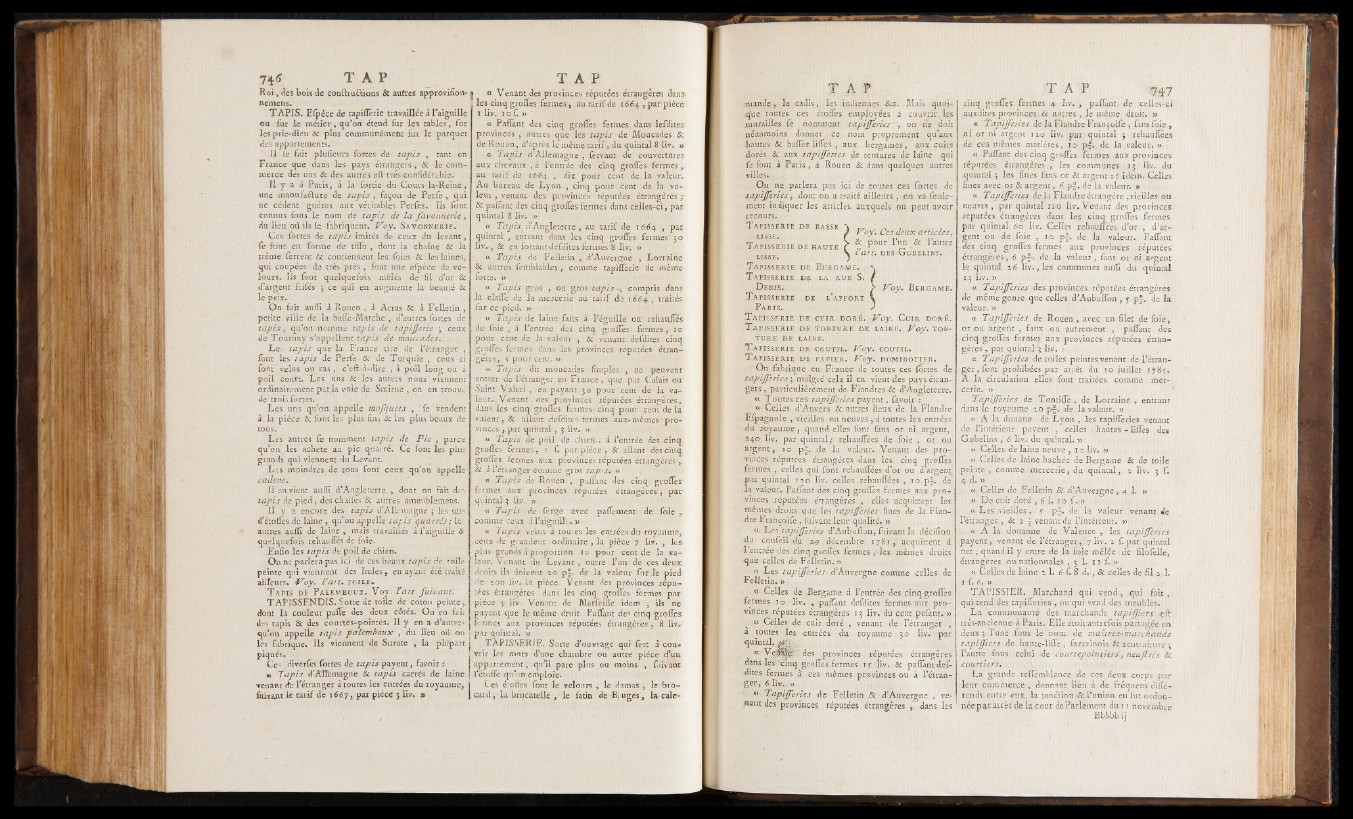 746 TAP TAP
Roi, des bois de conſtructions & autres approviſion-
nemens.
TAPIS. Eſpèce de tapiſſerie travaillée à l'aiguille
ou ſur le métier, qu'on étend ſur les tables, ſur
les prie-dieu & plus communément ſur le parquet
des appartements.
Il ſe fait pluſieurs ſortes de tapis, tant en
France que dans les pays étrangers, & le com-
merce des uns & des autres eſt très-conſidérable.
Il y a à Paris, à la ſortie du Cours-la-Reine,
une manufacture de tapis, façon de Perſe, qui
ne cèdent guères aux véritables Perſes. Ils ſont
connus ſous le nom de tapis de la ſavonnerie,
du lieu où ils ſe fabriquent. Voy. SAVONNERIE.
Ces ſortes de tapis imités de ceux du levant,
ſe font en forme de tiſſu, dont la chaîne & la
trême ſerrent & contiennent les ſoies & les laines,
qui coupées de très près, font une eſpèce de ve-
lours. Ils ſont quelquefois mêlés de fil d'or &
d'argent friſés ; ce qui en augmente la beauté &
le prix.
On fait auſſi à Rouen, à Arras & à Felletin,
petite ville de la baſſe-Marche, d'autres ſortes de
tapis, qu'on nomme tapis de tapiſſerie ; ceux
de Tournay s'appellent tapis de moucades.
Les tapis que la France tire de l'étranger,
ſont les tapis de Perſe & de Turquie, ceux-ci
ſont velus ou ras, c'eſt-à-dire, à poil long ou à
poil court. Les uns & les autres nous viennent
ordinairement par la voie de Smirne, on en trouve
de trois ſortes.
Les uns qu'on appelle moſquets, ſe vendent
à la pièce & ſont les plus fins & les plus beaux de
tous.
Les autres ſe nomment tapis de Pic, parce
qu'on les achete au pic quarré. Ce ſont les plus
grands qui viennent du Levant.
Les moindres de tous ſont ceux qu'on appelle
cadene.
Il en vient auſſi d'Angleterre, dont on fait des
tapis de pied, des chaiſes & autres ameublemens.
Il y a encore des tapis d'Allemagne ; les uns
d'étoffes de laine, qu'on appelle tapis quarrés ; les
autres auſſi de laine, mais travaillés à l'aiguille &
quelquefois rehauſſés de ſoie.
Enfin les tapis de poil de chien.
On ne parlera pas ici de ces beaux tapis de toile
peinte qui viennent des Indes, en ayant été traité
ailleurs. Voy. l'art. TOILE.
TAPIS DE PALEMBOUX. Voy. l'art ſuivant.
TAPISSENDIS. Sorte de toile de coton peinte,
dont la couleur paſſe des deux côtés. On en fait
des tapis & des courtes-pointes. Il y en a d'autres
qu'on appelle tapis palemboux, du lieu où on
les fabrique. Ils viennent de Surate, la plûpart
piqués.
Ces diverſes ſortes de tapis payent, ſavoir :
« Tapis d'Allemagne & tapis carrés de laine
venant de l'étranger à toutes les entrées du royaume,
ſuivant le tarif de 1667, par pièce 3 liv. »
« Venant des provinces réputées étrangères dans
les cinq groſſes fermes, au tarif de 1664, par pièce
1 liv. 10 ſ. »
« Paſſant des cinq groſſes fermes dans leſdites
provinces, autres que les tapis de Moucades &
de Rouen, d'après le même tarif, du quintal 8 liv. »
« Tapis d'Allemagne, ſervant de couvertures
aux chevaux, à l'entrée des cinq groſſes fermes,
au tarif de 1664, dix pour cent de la valeur.
Au bureau de Lyon, cinq pour cent de la va-
leur, venant des provinces réputées étrangères ;
& paſſant des cinq groſſes fermes dans celles-ci, par
quintal 8 liv. »
« Tapis d'Angleterre, au tarif de 1664, par
quintal, entrant dans les cinq groſſes fermes 30
liv., & en ſortant deſdites fermes 8 liv. »
« Tapis de Felletin, d'Auvergne, Lorraine
& autres ſemblables, comme tapiſſerie de même
ſorte. »
« Tapis gros, ou gros tapis, compris dans
la claſſe de la mercerie au tarif de 1664, traités
ſur ce pied. »
« Tapis de laine faits à l'éguille ou rehauſſés
de ſoie, à l'entrée des cinq groſſes fermes, 10
pour cent de la valeur, & venant deſdites cinq
groſſes fermes dans les provinces réputées étran-
gères, 5 pour cent. »
« Tapis dit moucades ſimples, ne peuvent
entrer de l'étranger en France, que par Calais ou
Saint Valeri, en payant 30 pour cent de la va-
leur. Venant des provinces réputées étrangères,
dans les cinq groſſes fermes cinq pour cent de la
valeur, & allant deſdites fermes aux-mêmes pro-
vinces, par quintal, 3 liv. »
« Tapis de poil de chien, à l'entrée des cinq
groſſes fermes, 5 ſ. par pièce, & allant des cinq
groſſes fermes aux provinces réputées étrangères,
& à l'étranger comme gros tapis. »
« Tapis de Rouen, paſſant des cinq groſſes
fermes aux provinces réputées étrangères, par
quintal 3 liv. »
« Tapis de ſerge avec paſſement de ſoie,
comme ceux à l'aiguille. »
« Tapis velus à toutes les entrées du royaume,
ceux de grandeur ordinaire, la pièce 7 liv., les
plus grands à proportion 10 pour cent de la va-
leur. Venant du Levant, outre l'un de ces deux
droits ils doivent 20 p°. de la valeur ſur le pied
de 200 liv. la pièce. Venant des provinces répu-
tées étrangères dans les cinq groſſes fermes par
pièce 5 liv. Venant de Marſeille idem, ils ne
payent que le même droit. Paſſant des cinq groſſes
fermes aux provinces réputées étrangères, 8 liv.
par quintal. »
TAPISSERIE. Sorte d'ouvrage qui ſert à cou-
vrir les murs d'une chambre ou autre pièce d'un
appartement, qu'il pare plus ou moins, ſuivant
l'étoffe qu'on emploie.
Ces étoffes ſont le velours, le damas, le bro-
card, la brocatelle, le ſatin de Bruges, la cale-
TAP TAP 747
mande, le cadis, les indiennes &c. Mais quoi-
que toutes ces étoffes employées à couvrir les
murailles ſe nomment tapiſſeries, on ne doit
néanmoins donner ce nom proprement qu'aux
hautes & baſſes liſſes, aux bergames, aux cuirs
dorés & aux tapiſſeries de tentures de laine qui
ſe font à Paris, à Rouen & dans quelques autres
villes.
On ne parlera pas ici de toutes ces ſortes de
tapiſſeries, dont on a traité ailleurs, on va ſeule-
ment indiquer les articles auxquels on peut avoir
recours.
TAPISSERIE DE BASSE
LISSE.
TAPISSERIE DE HAUTE
LISSE.
Voy. Ces deux articles,
& pour l'un & l'autre
l'art. DES GOBELINS.
TAPISSERIE DE BERGAME.
TAPISSERIE DE LA RUE S.
DENIS.
TAPISSERIE DE L'APPORT
PARIS.
Voy. BERGAME.
TAPISSERIE DE CUIR DORÉ. Voy. CUIR DORÉ.
TAPISSERIE DE TONTURE DE LAINE. Voy. TON-
TURE DE LAINE.
TAPISSERIE DE COUTIL. Voy. COUTIL.
TAPISSERIE DE PAPIER. Voy. DOMINOTIER.
On fabrique en France de toutes ces ſortes de
tapiſſeries ; malgré cela il en vient des pays étran-
gers, particulièrement de Flandres & d'Angleterre.
« Toutes ces tapiſſeries payent, ſavoir :
« Celles d'Anvers & autres lieux de la Flandre
Eſpagnole, vieilles ou neuves, à toutes les entrées
du royaume, quand elles ſont ſans or ni argent,
240 liv. par quintal ; rehauſſées de ſoie, or ou
argent, 10 p°. de la valeur. Venant des pro-
vinces réputées étrangères dans les cinq groſſes
fermes, celles qui ſont rehauſſées d'or ou d'argent
par quintal 120 liv. celles rehauſſées, 10 p°. de
la valeur. Paſſant des cinq groſſes fermes aux pro-
vinces réputées étrangères, elles acquittent les
mêmes droits que les tapiſſeries fines de la Flan-
dre Françoiſe, ſuivant leur qualité. »
« Les tapiſſeries d'Aubuſſon, ſuivant la déciſion
du conſeil du 29 décembre 1781, acquittent à
l'entrée des cinq groſſes fermes, les mêmes droits
que celles de Felletin. »
« Les tapiſſeries d'Auvergne comme celles de
Felletin. »
« Celles de Bergame à l'entrée des cinq groſſes
fermes 10 liv., paſſant deſdites fermes aux pro-
vinces réputées étrangères 13 liv. du cent peſant. »
« Celles de cuir doré, venant de l'étranger,
à toutes les entrées du royaume 30 liv. par
quintal.
« Venant des provinces réputées étrangères
dans les cinq groſſes fermes 15 liv. & paſſant deſ-
dites fermes à ces mêmes provinces ou à l'étran-
ger, 6 liv. »
« Tapiſſeries de Felletin & d'Auvergne, ve-
nant des provinces réputées étrangères, dans les
cinq groſſes fermes 4 liv., paſſant de celles-ci
auxdites provinces & autres, le même droit. »
« Tapiſſeries de la Flandre Françoiſe, ſans ſoie,
ni or ni argent 120 liv. par quintal ; rehauſſées
de ces mêmes matières, 10 p°. de la valeur. »
« Paſſant des cinq groſſes fermes aux provinces
réputées étrangères, les communes 13 liv. du
quintal ; les fines ſans or & argent 26 idem. Celles
fines avec or & argent, 6 p°. de la valeur. »
« Tapiſſeries de la Flandre étrangère, vieilles ou
neuves, par quintal 120 liv. Venant des provinces
réputées étrangères dans les cinq groſſes fermes
par quintal 60 liv. Celles rehauſſées d'or, d'ar-
gent ou de ſoie, 10 p°. de la valeur. Paſſant
des cinq groſſes fermes aux provinces réputées
étrangères, 6 p°. de la valeur, ſans or ni argent
le quintal 26 liv., les communes auſſi du quintal
13 liv. »
« Tapiſſeries des provinces réputées étrangères
de même genre que celles d'Aubuſſon, 5 p°. de la
valeur. »
« Tapiſſeries de Rouen, avec un filet de ſoie,
or ou argent, faux ou autrement, paſſant des
cinq groſſes fermes aux provinces réputées étran-
gères, par quintal 3 liv. »
« Tapiſſeries de toiles peintes venant de l'étran-
ger, ſont prohibées par arrêt du 10 juillet 1785.
A la circulation elles ſont traitées comme mer-
cerie. »
Tapiſſeries de Tontiſſe, de Lorraine, entrant
dans le royaume 20 p°. de la valeur. »
« A la douane de Lyon, les tapiſſeries venant
de l'intérieur payent, celles hautes-liſſes des
Gobelins, 6 liv. du quintal. »
« Celles de laine neuve, 10 liv. »
« Celles de laine hachée de Bergame & de toile
peinte, comme mercerie, du quintal, 2 liv. 3 ſ.
4 d. »
« Celles de Felletin & d'Auvergne, 4 l. »
« De cuir doré, 6 l. 10 ſ. »
« Les vieilles, 5 p°. de la valeur venant de
l'étranger, & 2 ½ venant de l'intérieur. »
« A la douanne de Valence, les tapiſſeries
payent, venant de l'étranger, 7 liv. 2 ſ. par quintal
net, quand il y entre de la ſoie mêlée de filoſelle,
étrangères ou nationnales, 3 l. 11 ſ. »
« Celles de laine 2 l. 6 ſ. 8 d., & celles de fil 2 l.
1 ſ. 6. »
TAPISSIER. Marchand qui vend, qui fait,
qui tend des tapiſſeries, ou qui vend des meubles.
La communauté des marchands tapiſſiers eſt
très-ancienne à Paris. Elle étoit autrefois partagée en
deux ; l'une ſous le nom de maîtres-marchands
tapiſſiers de haute-liſſe, ſarazinois & rentraiture ;
l'autre ſous celui de courtepointiers, neuſtrés &
coutiers.
La grande reſſemblance de ces deux corps pour
leur commerce, donnant lieu à de fréquens diffé-
rends entre eux, la jonction & l'union en fut ordon-
née par arrêt de la cour de Parlement du 11 novembre
Bbbbb ij